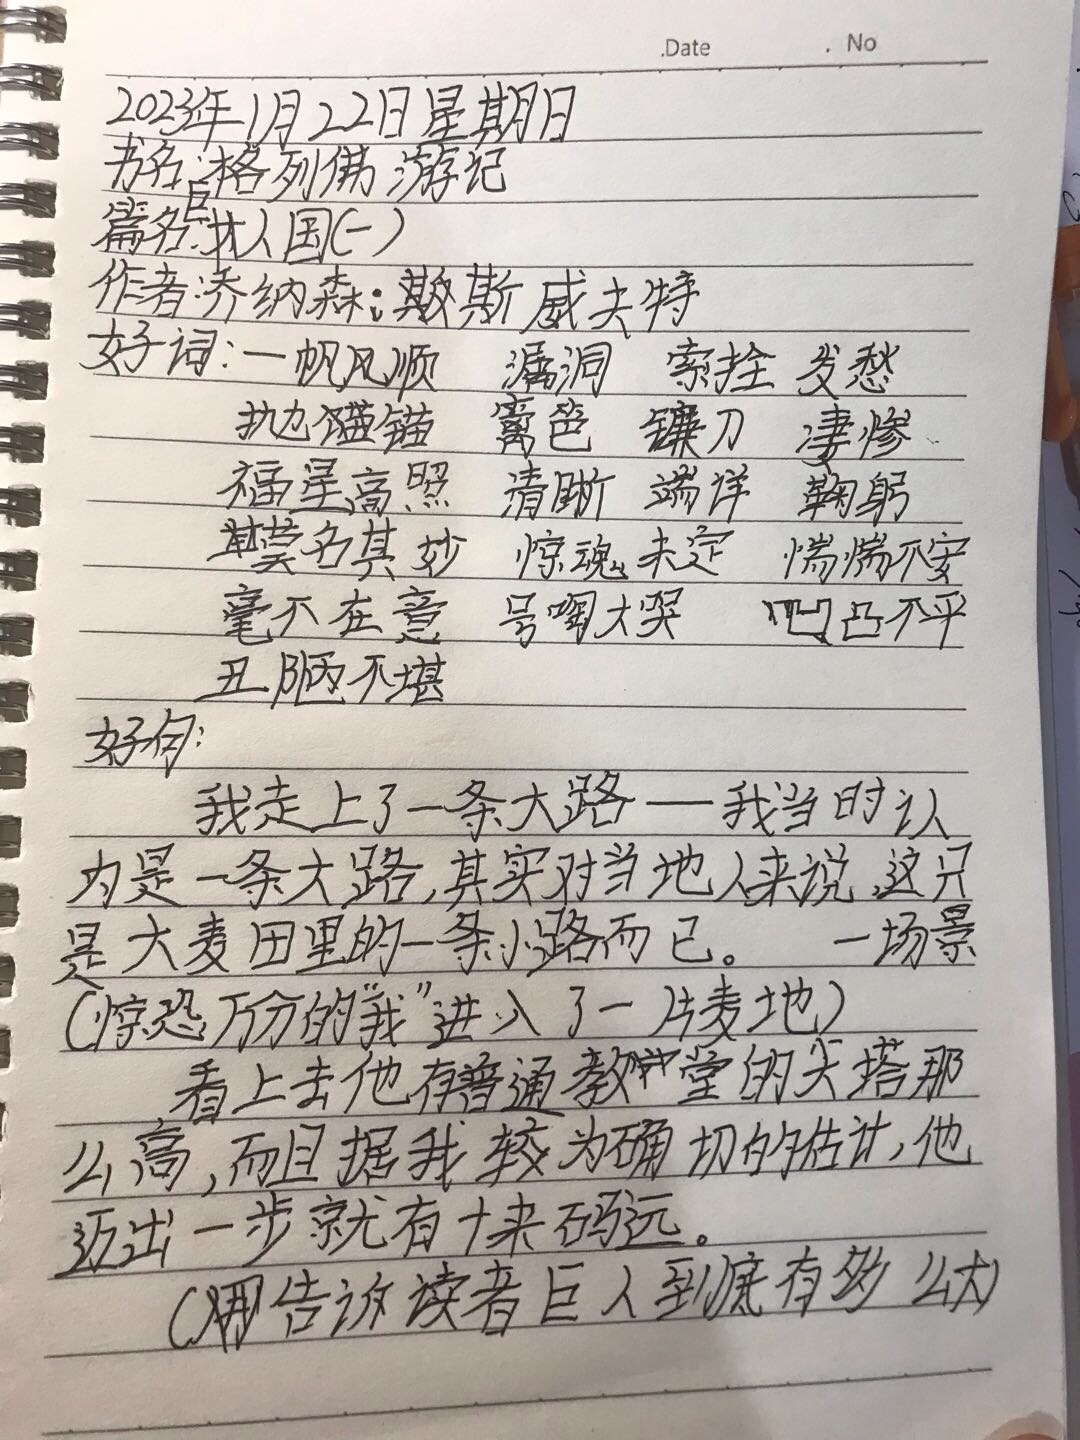 .Date . No
2023年1月22日星期日
书名:格列佛游记
篇名:巨人国(一)
作者:乔纳森:斯威夫特
好词:一帆风顺 漏洞 索拴 发愁
抛锚 篱笆 镰刀 凄惨
福星高照 清晰 端详 鞠躬
莫名其妙 惊魂未定 惴惴不安
毫不在意 号啕大哭 凹凸不平
丑陋不堪
好句:
我走上了一条大路——我当时认
为是一条大路,其实对当地人来说,这只
是大麦田里的一条小路而已。 一场景
(惊恐万分的“我”进入了一片麦地)
看上去他有普通教堂的尖塔那
么高,而且据我较为确切的估计,他
迈出一步就有十来码远。
(告诉读者巨人到底有多么大)